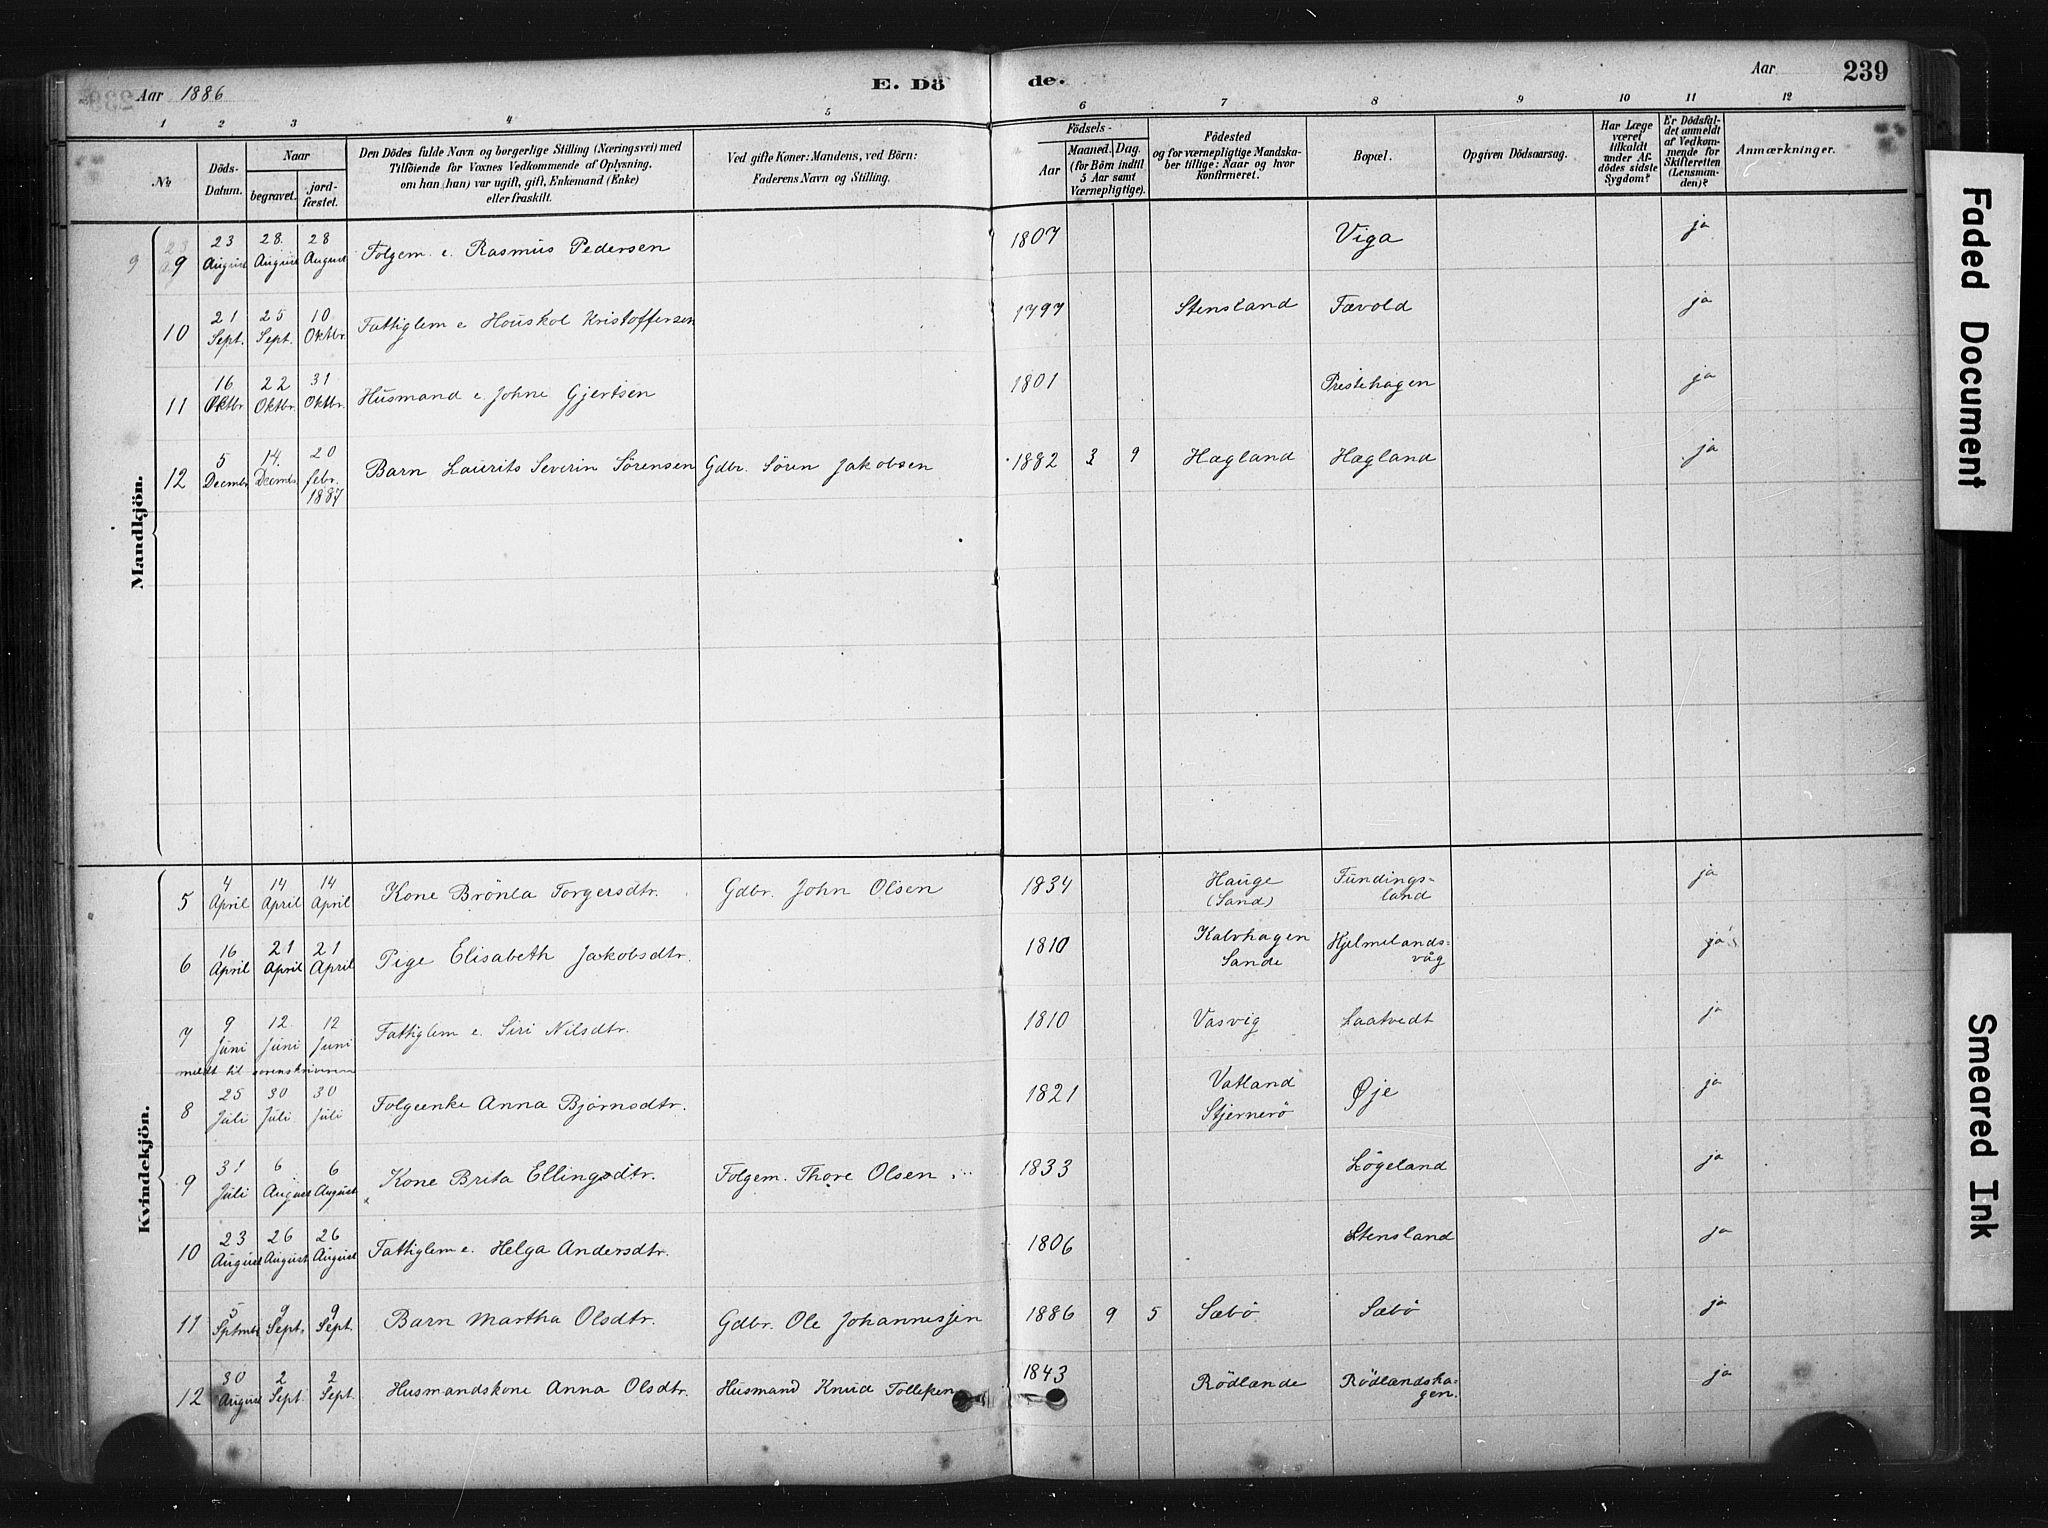 Aar 1886 E. Dö de. Aar 239
1 2 3 4 5 6 7 8 9 10 11 12
No Döds-Datum. Naar begravet. jord-fæstet. Den Dödes fulde Navn og borgerlige Stilling (Næringsvei) med Tilföiende for Voxnes Vedkommende af Oplysning, om han (hun) var ugift, gift, Enkemand (Enke) eller fraskilt. Ved gifte Koner: Mandens, ved Börn: Faderens Navn og Stilling. Födsels- Aar Maaned. Dag. (for Börn indtil 5 Aar samt Værnepligtige). Födested og for værnepligtige Mandska-ber tillige: Naar og hvor Konfirmeret. Bopæl. Opgiven Dödsaarsag. Har Læge været tilkaldt under Af-dödes sidste Sygdom? Er Dödsfal-det anmeldt af Vedkom-mende for Skifteretten (Lensman-den)? Anmærkninger.
Mandkjön.
9 9 23 August 28 August 28 August Folgem. e. Rasmus Pedersen 1807 Viga ja
10 21 Sept. 25 Sept. 10 Oktbr. Fattiglem e Houskol Kristoffersen 1797 Stensland Fævold ja
11 16 Oktbr 22 Oktbr. 31 Oktbr. Husmand e Johne Gjertsen 1801 Prestehagen ja
12 5 Decmbr 14. Decmbr. 20 febr. 1887 Barn Laurits Severin Sørensen Gdbr. Sören Jakobsen 1882 3 9 Hægland Hægland ja
Kvindekjön.
5 4 April 14 April 14 April Kone Brönla Torgersdtr. Gdbr. John Olsen 1834 Hauge (Sand) Fundings-land ja
6 16 April 21 April 21 April Pige Elisabeth Jakobsdtr. 1810 Kalvhagen Sande Hjelmelands-våg ja
7 9 Juni 12 Juni 12 Juni Fattiglem e. Siri Nilsdtr. 1810 Vasvig Laatvedt ja
meldt til sorenskriveren
8 25 Juli 30 Juli 30 Juli Folgeenke Anna Bjørnsdtr. 1821 Vatland Stjernerö Øje ja
9 31 Juli 6 August 6 August Kone Brita Ellingsdtr. Folgem. Thore Olsen 1833 Lögeland ja
10 23 August 26 August 26 August Fattiglem e. Helga Andersdtr. 1806 Stensland ja
11 5 Sptmbr 9 Sept. 9 Sept. Barn Martha Olsdtr. Gdbr. Ole Johannessen 1886 9 5 Sæbö Sæbö ja
12 30 August 2 Sept. 2 Sept. Husmandskone Anna Olsdtr. Husmand Knud Tollefsen 1843 Rödlande Rödlandsha-gen. ja
Faded Document
Smeared Ink